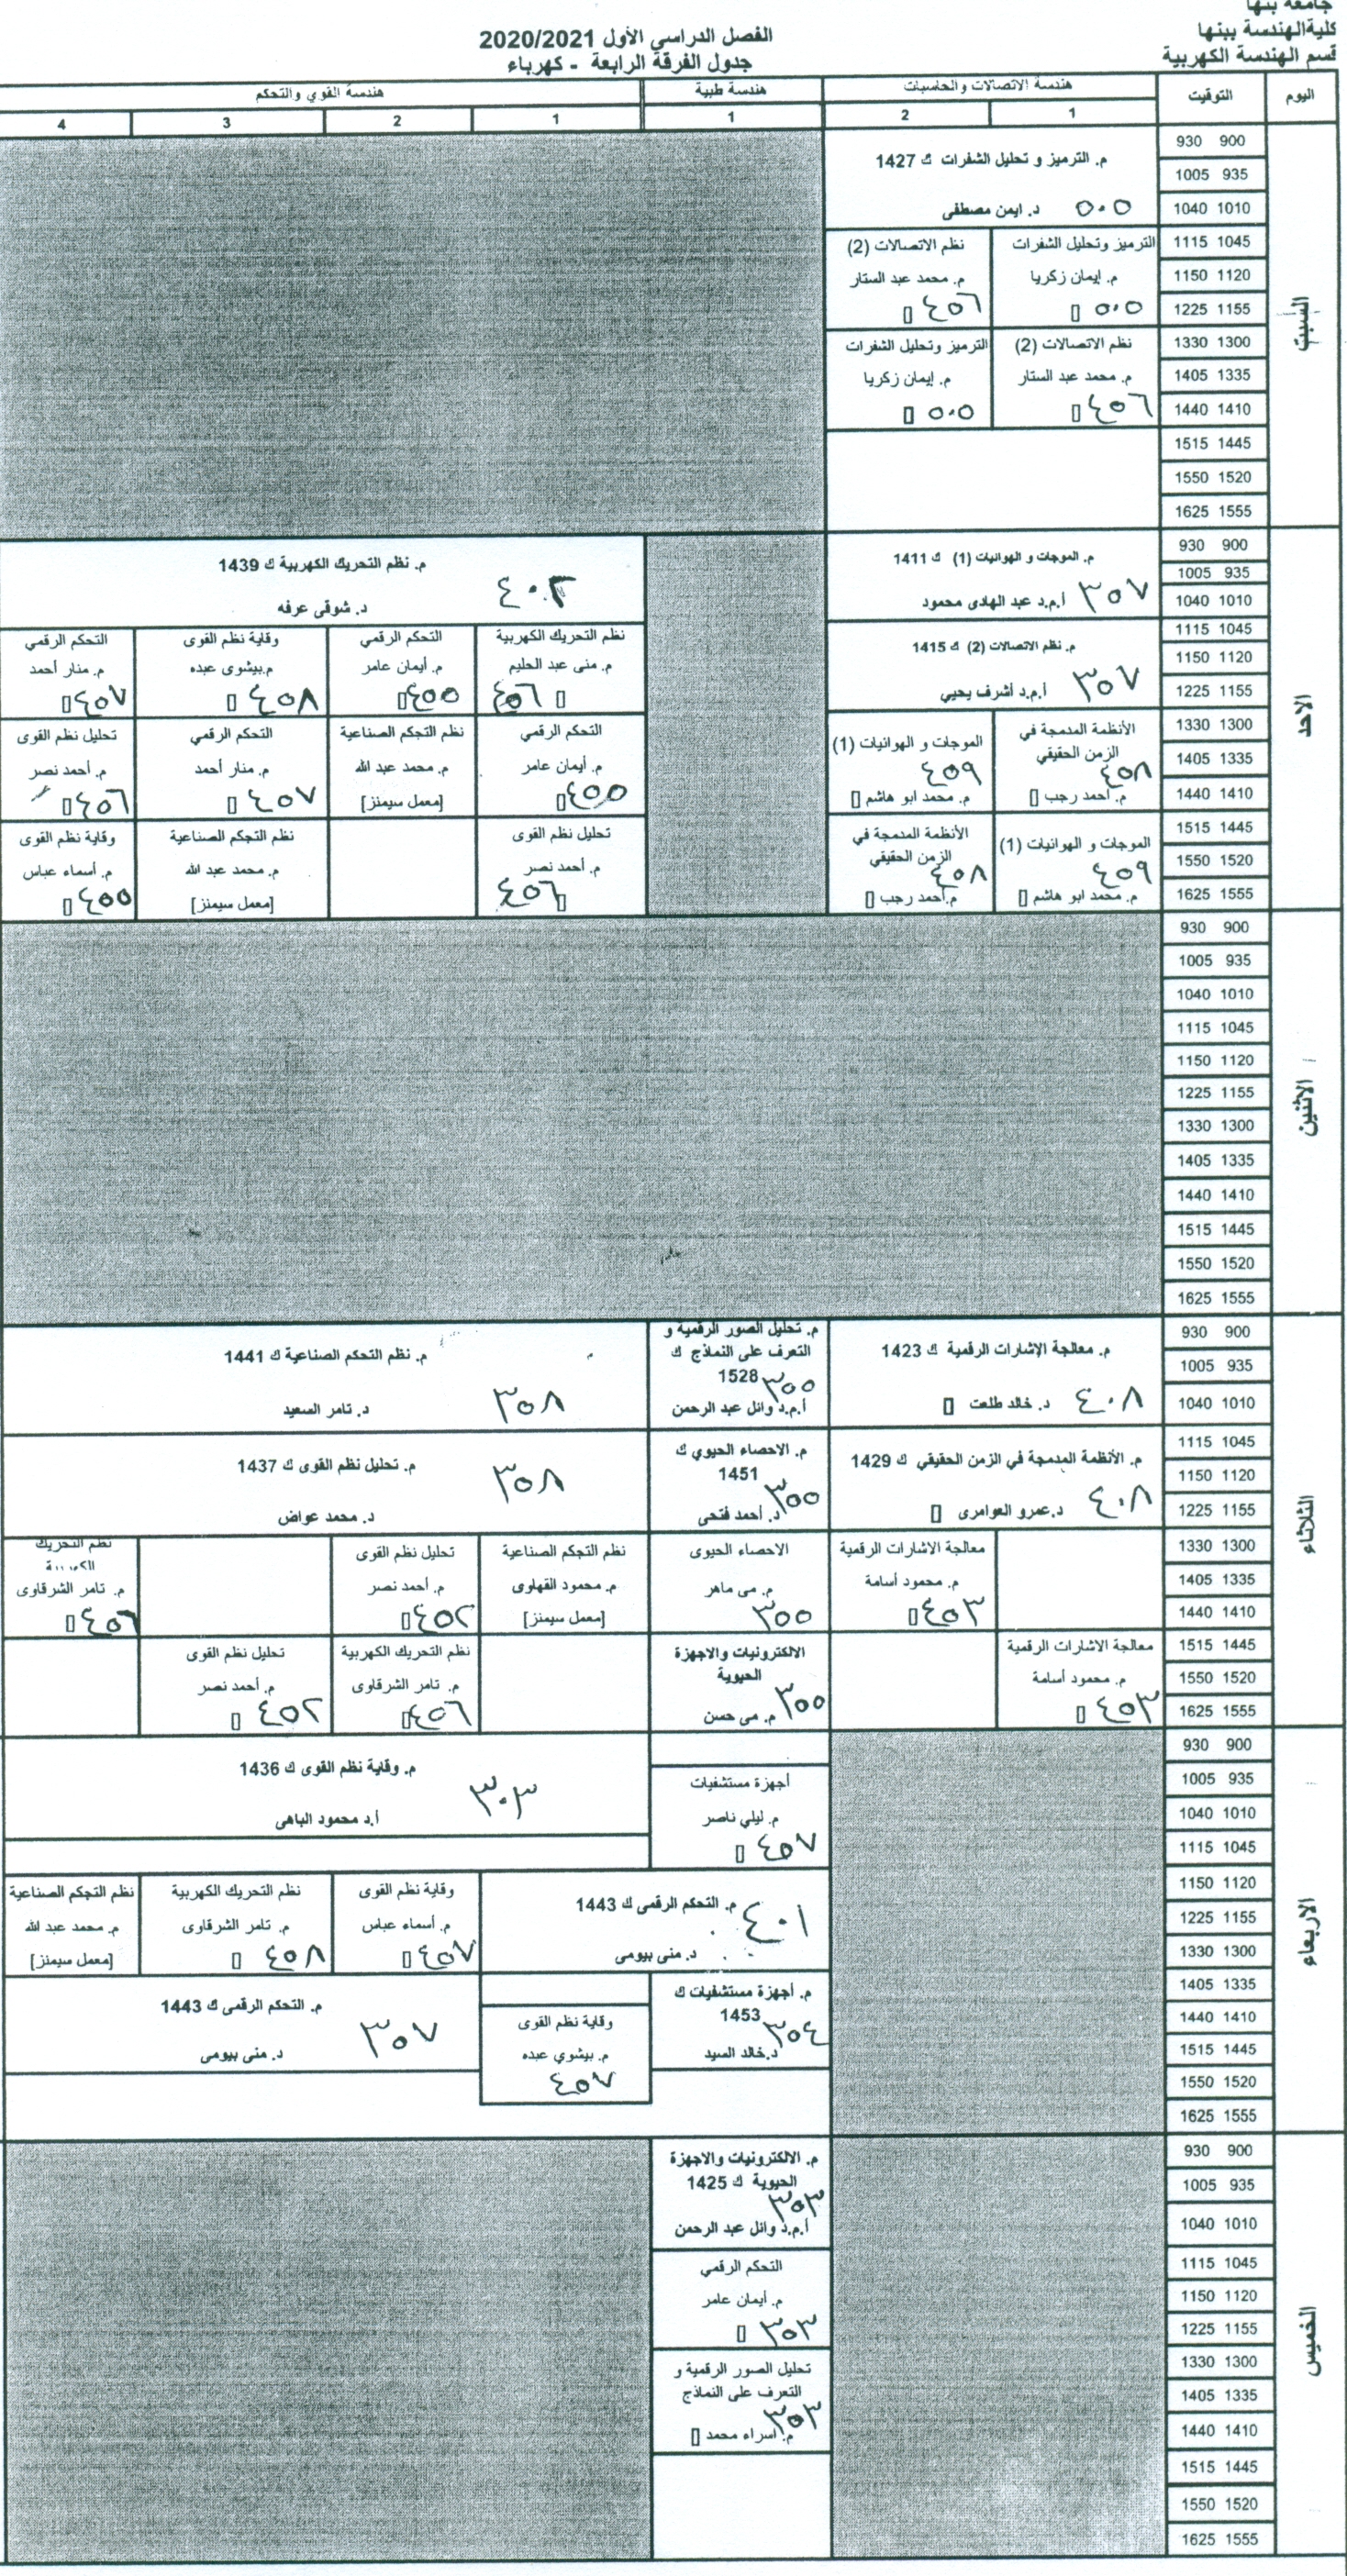 جامعة بنها
كليةالهندسة ببنها
قسم الهندسة الكهربية
الفصل الدراسي الأول 2020/2021
جدول الفرقة الرابعة - كهرباء
اليوم التوقيت هندسة الاتصالات والحاسبات هندسة طبية هندسة القوي والتحكم
1 2 1 1 2 3 4
السبت
930 900
1005 935
1040 1010
1115 1045
1150 1120
1225 1155
1330 1300
1405 1335
1440 1410
1515 1445
1550 1520
1625 1555
م. الترميز و تحليل الشفرات ك 1427
د. ايمن مصطفى ٥٠٥
الترميز وتحليل الشفرات
م. إيمان زكريا
٥٠٥
نظم الاتصالات (2)
م. محمد عبد الستار
٤٥٦
نظم الاتصالات (2)
م. محمد عبد الستار
٤٥٦
الترميز وتحليل الشفرات
م. إيمان زكريا
٥٠٥
الاحد
930 900
1005 935
1040 1010
1115 1045
1150 1120
1225 1155
1330 1300
1405 1335
1440 1410
1515 1445
1550 1520
1625 1555
م. الموجات و الهوائيات (1) ك 1411
أ.م.د عبد الهادى محمود ٣٥٧
م. نظم الاتصالات (2) ك 1415
أ.م.د أشرف يحيي ٣٥٧
الأنظمة المدمجة في
الزمن الحقيقي
٤٥٨
م. أحمد رجب
الموجات و الهوائيات (1)
٤٥٩
م. محمد ابو هاشم
الموجات و الهوائيات (1)
٤٥٩
م. محمد ابو هاشم
الأنظمة المدمجة في
الزمن الحقيقي
٤٥٨
م.أحمد رجب
م. نظم التحريك الكهربية ك 1439
٤٠٢
د. شوقى عرفه
نظم التحريك الكهربية
م. منى عبد الحليم
٤٥٦
التحكم الرقمي
م. أيمان عامر
٤٥٥
وقاية نظم القوى
م.بيشوى عبده
٤٥٨
التحكم الرقمي
م. منار أحمد
٤٥٧
التحكم الرقمي
م. أيمان عامر
٤٥٥
نظم التحكم الصناعية
م. محمد عبد الله
[معمل سيمنز]
التحكم الرقمي
م. منار أحمد
٤٥٧
تحليل نظم القوى
م. أحمد نصر
٤٥٦
تحليل نظم القوى
م. أحمد نصر
٤٥٦
نظم التحكم الصناعية
م. محمد عبد الله
[معمل سيمنز]
وقاية نظم القوى
م. أسماء عباس
٤٥٥
الاثنين
930 900
1005 935
1040 1010
1115 1045
1150 1120
1225 1155
1330 1300
1405 1335
1440 1410
1515 1445
1550 1520
1625 1555
الثلاثاء
930 900
1005 935
1040 1010
1115 1045
1150 1120
1225 1155
1330 1300
1405 1335
1440 1410
1515 1445
1550 1520
1625 1555
م. معالجة الإشارات الرقمية ك 1423
د. خالد طلعت ٤٠٨
م. الأنظمة المدمجة في الزمن الحقيقي ك 1429
د.عمرو العوامرى ٤٠٨
معالجة الاشارات الرقمية
م. محمود أسامة
٤٥٣
معالجة الاشارات الرقمية
م. محمود أسامة
٤٥٣
م. تحليل الصور الرقمية و
التعرف على النماذج ك
1528 ٣٥٥
أ.م.د وائل عبد الرحمن
م. الاحصاء الحيوي ك
1451
٣٥٥
د. أحمد فتحى
الاحصاء الحيوى
م. مى ماهر
٣٥٥
الالكترونيات والاجهزة
الحيوية
٣٥٥
م. مى حسن
م. نظم التحكم الصناعية ك 1441
٣٥٨
د. تامر السعيد
م. تحليل نظم القوى ك 1437
٣٥٨
د. محمد عواض
نظم التحكم الصناعية
م. محمود القهاوى
[معمل سيمنز]
تحليل نظم القوى
م. أحمد نصر
٤٥٢
نظم التحريك
الكهربية
م. تامر الشرقاوى
٤٥٦
نظم التحريك الكهربية
م. تامر الشرقاوى
٤٥٦
تحليل نظم القوى
م. أحمد نصر
٤٥٢
الاربعاء
930 900
1005 935
1040 1010
1115 1045
1150 1120
1225 1155
1330 1300
1405 1335
1440 1410
1515 1445
1550 1520
1625 1555
أجهزة مستشفيات
م. ليلي ناصر
٤٥٧
م. وقاية نظم القوى ك 1436
٣٠٣
أ.د محمود الباهى
م. التحكم الرقمى ك 1443
٤٠١
د. منى بيومى
وقاية نظم القوى
م. أسماء عباس
٤٥٧
نظم التحريك الكهربية
م. تامر الشرقاوى
٤٥٨
نظم التحكم الصناعية
م. محمد عبد الله
[معمل سيمنز]
م. أجهزة مستشفيات ك
1453
٣٥٤
د.خالد السيد
وقاية نظم القوى
م. بيشوي عبده
٤٥٧
م. التحكم الرقمى ك 1443
٣٥٧
د. منى بيومى
الخميس
930 900
1005 935
1040 1010
1115 1045
1150 1120
1225 1155
1330 1300
1405 1335
1440 1410
1515 1445
1550 1520
1625 1555
م. الالكترونيات والاجهزة
الحيوية ك 1425
٣٥٣
أ.م.د وائل عبد الرحمن
التحكم الرقمي
م. أيمان عامر
٣٥٣
تحليل الصور الرقمية و
التعرف على النماذج
٣٥٣
م. اسراء محمد